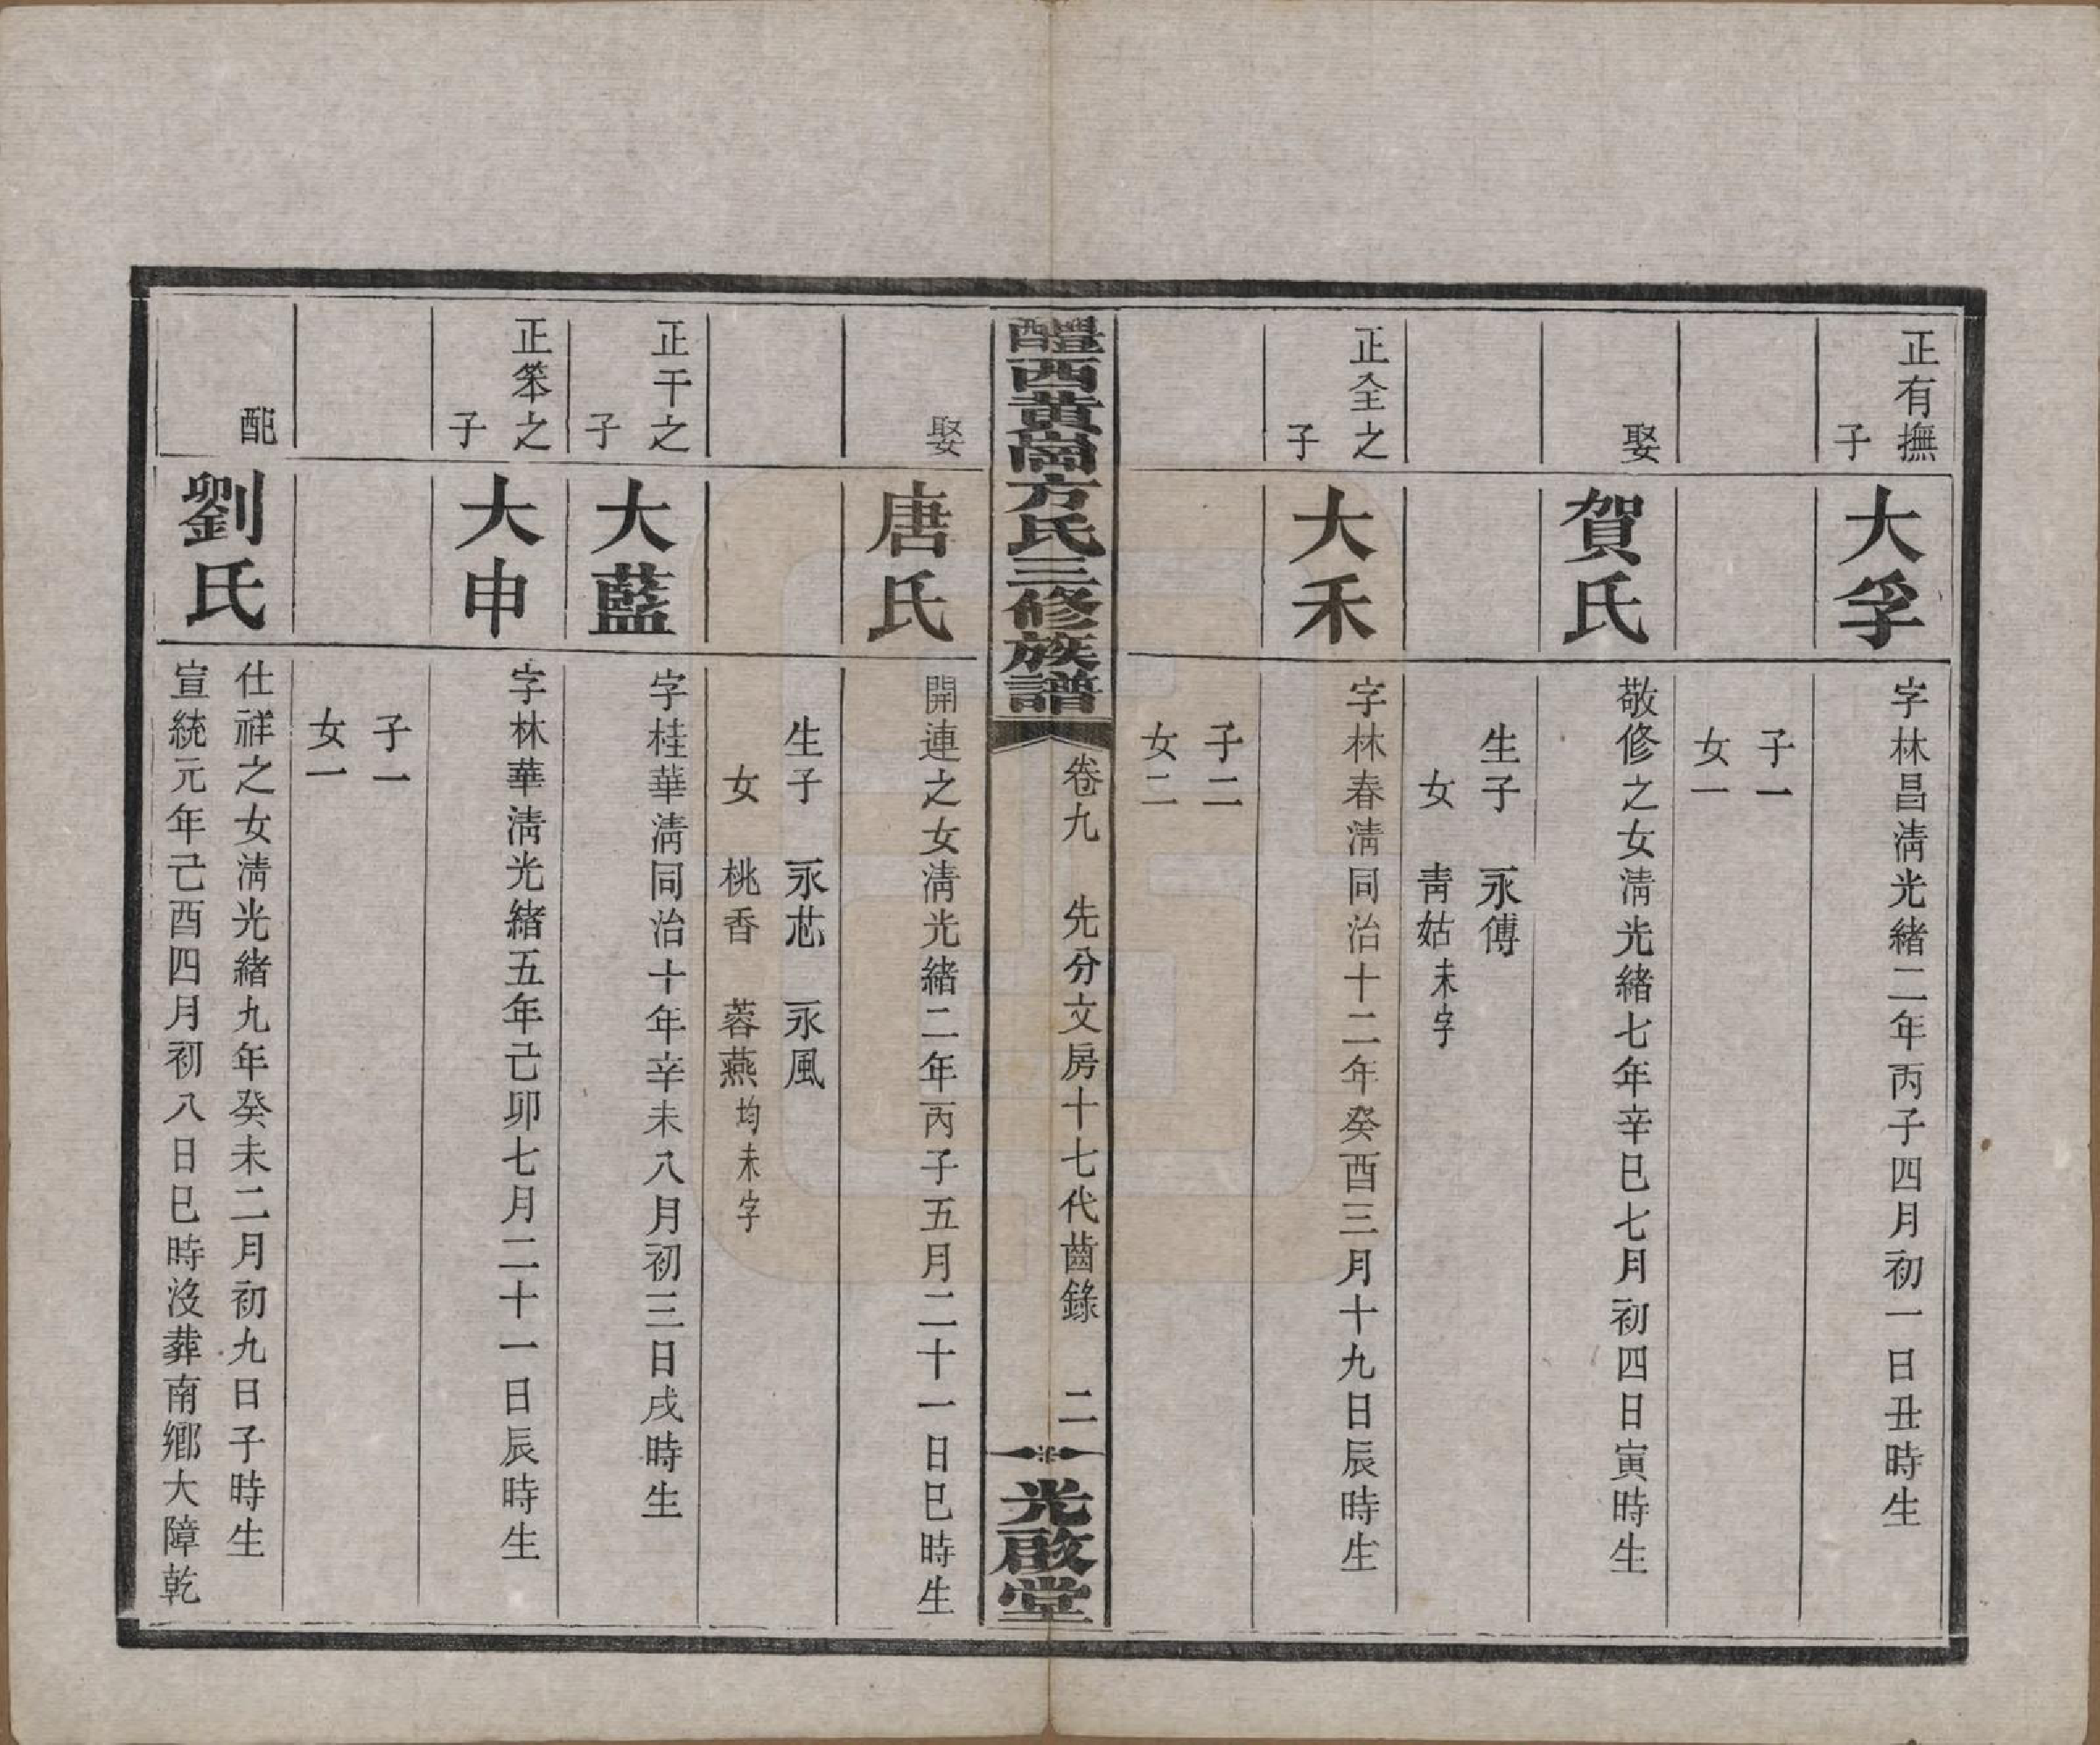 正有撫之子
大孚
字林昌淸光緖二年丙子四月初一日丑時生
子一
女一
娶
賀氏
敬修之女淸光緖七年辛巳七月初四日寅時生
生子 永傅
女 靑姑未字
正全之子
大禾
字林春淸同治十二年癸酉三月十九日辰時生
子二
女二
醴西黃崗方氏三修族譜
卷九 先分文房十七代齒錄 二
光啟堂
娶
唐氏
開連之女淸光緖二年丙子五月二十一日巳時生
生子 永芯 永風
女 桃香 蓉燕均未字
正干之子
大藍
字桂華淸同治十年辛未八月初三日戌時生
正筞之子
大申
字林華淸光緖五年己卯七月二十一日辰時生
子一
女一
配
劉氏
仕祥之女淸光緖九年癸未二月初九日子時生
宣統元年己酉四月初八日巳時沒葬南鄉大障乾